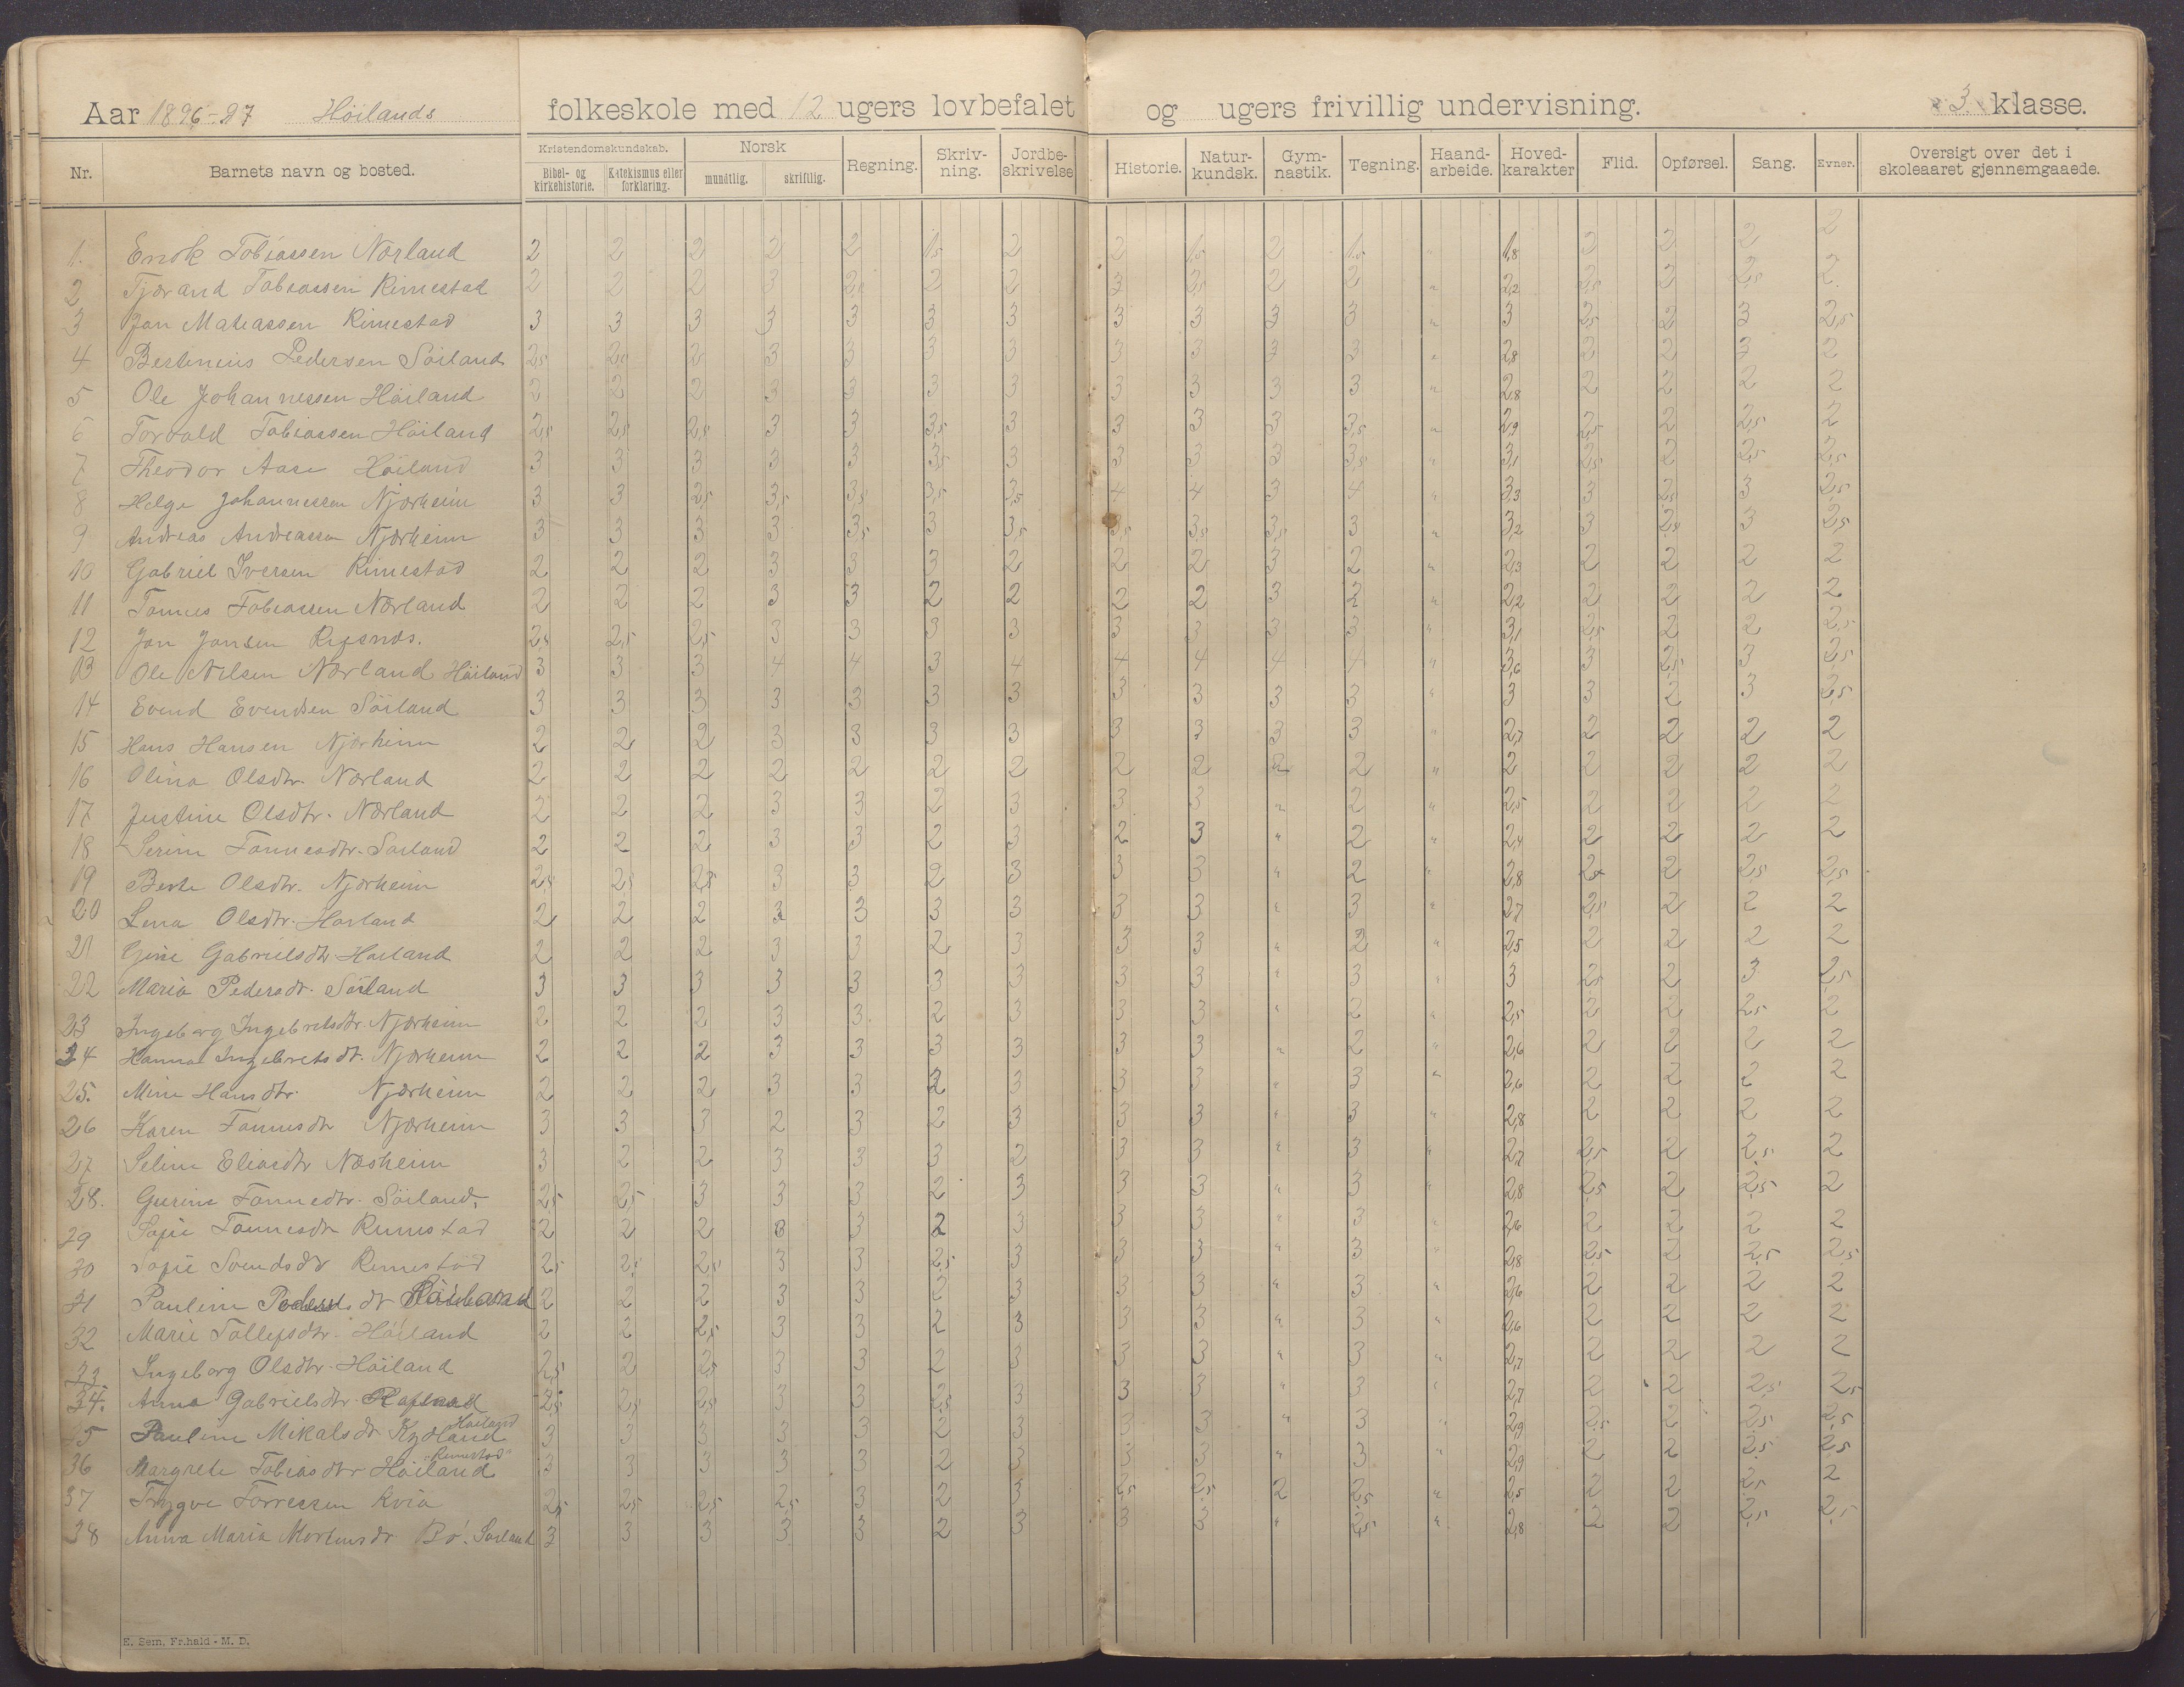 Aar 1896-97 Höilands folkeskole med 12 ugers lovbefalet og ugers frivillig undervisning. 3. klasse.
Nr. Barnets navn og bosted. Kristendomskundskab. Bibel- og kirkehistorie. Katekismus eller forklaring. Norsk mundtlig. skriftlig. Regning. Skriv-ning. Jordbe-skrivelse Historie. Natur-kundsk. Gym-nastik. Tegning. Haand-arbeide. Hoved-karakter Flid. Opførsel. Sang. Evner. Oversigt over det i skoleaaret gjennemgaaede.
1. Enok Tobiassen Nærland 2 2 2 2 2 1,5 2 2 1,5 2 1,5 " 1,8 2 2 2 2
2 Tjærand Tobiassen Rimestad 2 2 2 3 2,5 2 2 3 2,5 2 2 " 2,2 2,5 2 2,5 2
3 Jon Matiassen Rimestad 3 3 3 3 3 3 3 3 3 3 3 " 3 2,5 2 3 2,5
4 Bertinius Pedersen Söiland 2,5 2,5 2 3 3 3 3 3 3 3 3 " 2,8 2 2 3 2
5 Ole Johannessen Höiland 2 2 2 3 3 3 3 3 3 3 3 " 2,8 2 2 2 2
6 Torvald Tobiassen Höiland 2,5 2,5 2,5 3 3 3,5 3 3 3 3 3,5 " 2,9 2,5 2 2,5 2
7 Theodor Aase Höiland 3 3 3 3 3 3,5 3 3 3 3 3,5 " 3,1 2,5 2 2,5 2,5
8 Helge Johannessen Njærheim 3 3 2,5 3,5 3,5 3,5 3,5 4 4 3 4 " 3,3 3 2,5 3 2,5
9 Andreas Andreassen Njærheim 3 3 3 3 3,5 3 3,5 3,5 3,5 3,5 3 " 3,2 3 2,5 3 2,5
10 Gabriel Iversen Rimestad 2 2 2 3 3 3 2 2 2 3 2 " 2,3 2 2 2 2
11 Tønnes Tobiassen Nærland 2 2 2 3 3 2 2 2 2 3 2 " 2,2 2 2 2 2
12 Jon Jonsen 2,5 2,5 2,5 3 3 3 3 3 3 3 3 " 3,1 2,5 2 2 2,5
13 Ole Nilsen Nærland Höiland 3 3 3 4 4 3 4 4 4 4 4 " 3,6 3 2,5 3 2,5
14 Evend Evendsen Söiland 3 3 3 3 3 3 3 3 3 3 3 " 3 3 2 3 2,5
15 Hans Hansen Njærheim 2 2 2 3 3 3 3 3 3 3 3 " 2,7 2 2 2 2
16 Olina Olsdtr. Nærland 2 2 2 2 2 2 2 2 2 2 2 " 2 2 2 2 2
17 Justine Olsdtr. Nærland 2 2 2 3 3 2 3 3 3 " 2 " 2,5 2 2 2 2
18 Serine Tønnesdtr. Söiland 2 2 2 3 3 2 3 2 3 " 2 " 2,4 2 2 2 2
19 Berte Olsdtr. Njærheim 2,5 2,5 2,5 3 3 2 3 3 3 " 2 " 2,8 2 2 2,5 2,5
20 Lena Olsdtr. Höiland 2 2 2 3 3 3 3 3 3 " 3 " 2,7 2,5 2 2 2
21 Gine Gabrielsdtr Höiland 2 2 2 3 3 2 3 3 3 " 2 " 2,5 2 2 2 2
22 Maria Pedersdr. Söiland 3 3 3 3 3 3 3 3 3 " 3 " 3 2,5 2 3 2,5
23 Ingeborg Ingebretsdtr. Njærheim 2 2 2 3 3 2 3 3 3 " 2 " 2,5 2 2 2,5 2
24 Hanna Ingebretsdt. Njærheim 2 2 2 3 3 3 3 3 3 " 2 " 2,6 2 2 2 2
25. Mine Hansdtr. Njærheim 2 2 2 3 3 2 3 3 3 " 3 " 2,6 2 2 2 2
26 Karen Tønnesdtr Njærheim 3 3 3 2 3 2 3 3 3 " 3 " 2,8 2 2 2 2
27 Seline Eliasdtr Næsheim 3 2 2 3 3 3 2 3 3 " 3 " 2,7 2,5 2 2,5 2
28. Gurine Tønnesdtr. Söiland. 2,5 2,5 3 3 3 2 3 3 3 " 3 " 2,8 2,5 2 2,5 2
29 Sofie Tønnesdtr Rimestad 2 2 2 3 3 2 3 3 3 " 3 " 2,6 2 2 2 2
30 Sofie Svendsdtr Rimestad 2,5 2,5 2,5 3 3 2,5 3 3 3 " 3 " 2,8 2,5 2 2,5 2,5
31 Pauline Pedersdr 2 2 2 3 3 2 3 3 3 " 3 " 2,6 2 2 2 2
32 Marie Tollefsdtr. Höiland 2 2 2,5 3 3 2 3 3 3 " 3 " 2,6 2 2 2 2
33 Ingeborg Olsdtr. Höiland 2,5 2 2,5 3 3 2 3 3 3 " 3 " 2,7 2 2 2 2
34. Anna Gabrielsdtr. 2,5 2,5 2,5 3 3 2,5 3 3 3 " 3 " 2,7 2 2 2,5 2,5
35 Pauline Mikalsdr Kydland Höiland 3 3 3 3 3 2 3 3 3 " 3 " 2,9 2,5 2 2,5 2,5
36 Margrete Tobiasdtr Höiland Rimestad 3 3 3 3 3 2 3 3 3 " 3 " 2,9 2 2 2,5 2,5
37 Trygve Torressen Kvia 2,5 2,5 2,5 2,5 3 2 3 2,5 2,5 2 2,5 " 2,5 2 2 2,5 2
38 Anna Maria Mortensdr Bö. Söiland 3 3 3 3 3 2 3 3 3 " 2,5 " 2,8 2 2 2,5 2,5
E. Sem, Fr.hald - M. D.